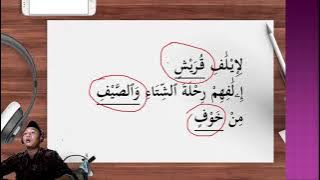 لِإِيْلٰفِ قُرَيْشٍ
إِۦلٰفِهِمْ رِحْلَةَ ٱلشِّتَاءِ وَٱلصَّيْفِ
مِنْ خَوْفٍ